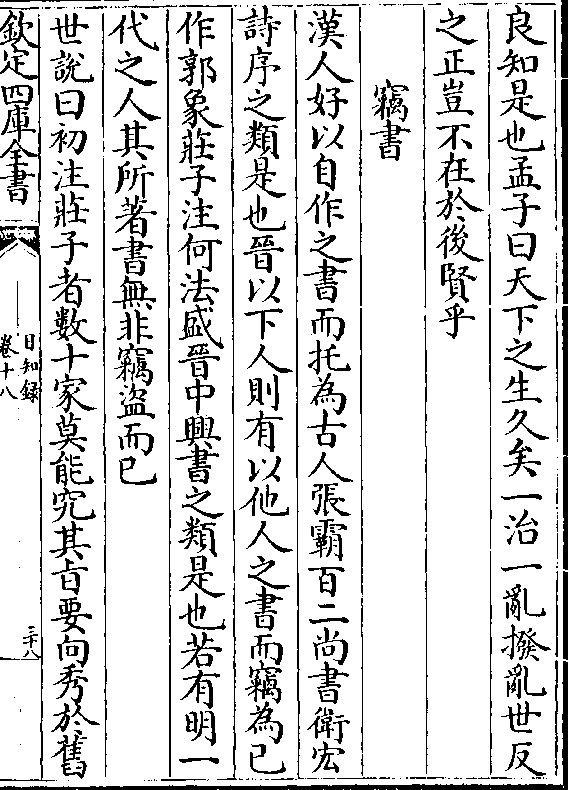 良知是也孟子曰天下之生久矣一治一亂撥亂世反
之正豈不在於後賢乎
竊書
漢人好以自作之書而托為古人張霸百二尚書衛宏
詩序之類是也晉以下人則有以他人之書而竊為已
作郭象莊子注何法盛晉中興書之類是也若有明一
代之人其所著書無非竊盜而已
世說曰初注莊子者數十家莫能究其㫖要向秀於舊
欽定四庫全書
日知録
卷十八
三十八